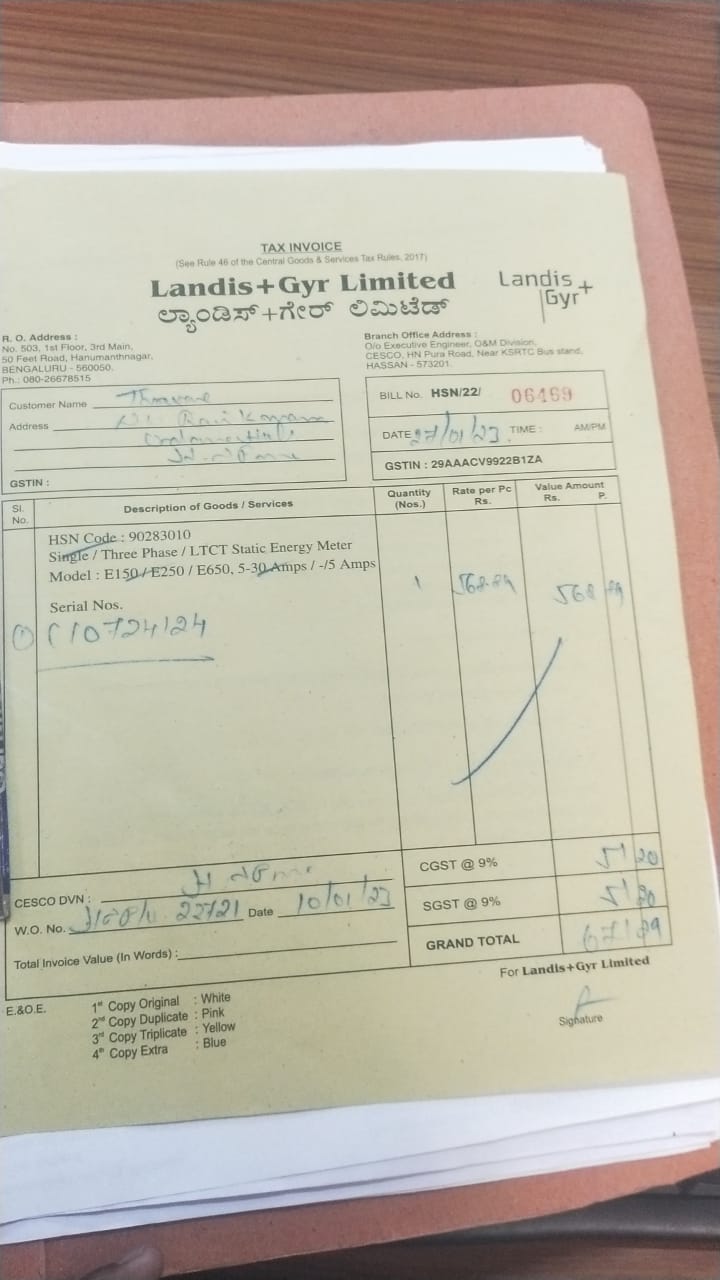 TAX INVOICE
(See Rule 46 of the Central Goods & Services Tax Rules, 2017)
Landis+Gyr Limited
ಲ್ಯಾಂಡಿಸ್+ಗೇರ್ ಲಿಮಿಟೆಡ್
Landis
Gyr+
R. O. Address :
No. 503, 1st Floor, 3rd Main,
50 Feet Road, Hanumanthnagar,
BENGALURU - 560050.
Ph.: 080-26678515
Branch Office Address :
O/o Executive Engineer, O&M Division,
CESCO, HN Pura Road, Near KSRTC Bus stand,
HASSAN - 573201.
Customer Name
Address
GSTIN :
BILL No. HSN/22/ 06469
DATE 27/01/23 TIME : AM/PM
GSTIN : 29AAACV9922B1ZA
Sl. No. Description of Goods / Services Quantity (Nos.) Rate per Pc Rs. Value Amount Rs. P.
HSN Code : 90283010
Single / Three Phase / LTCT Static Energy Meter
Model : E150 / E250 / E650, 5-30 Amps / -/5 Amps
1 568.89 568 89
Serial Nos.
① C10724124
CGST @ 9% 51 20
SGST @ 9% 51 20
GRAND TOTAL
CESCO DVN :
W.O. No. 22721 Date 10/01/23
Total Invoice Value (In Words) :
For Landis+Gyr Limited
Signature
E.&O.E.
1st Copy Original : White
2nd Copy Duplicate : Pink
3rd Copy Triplicate : Yellow
4th Copy Extra : Blue